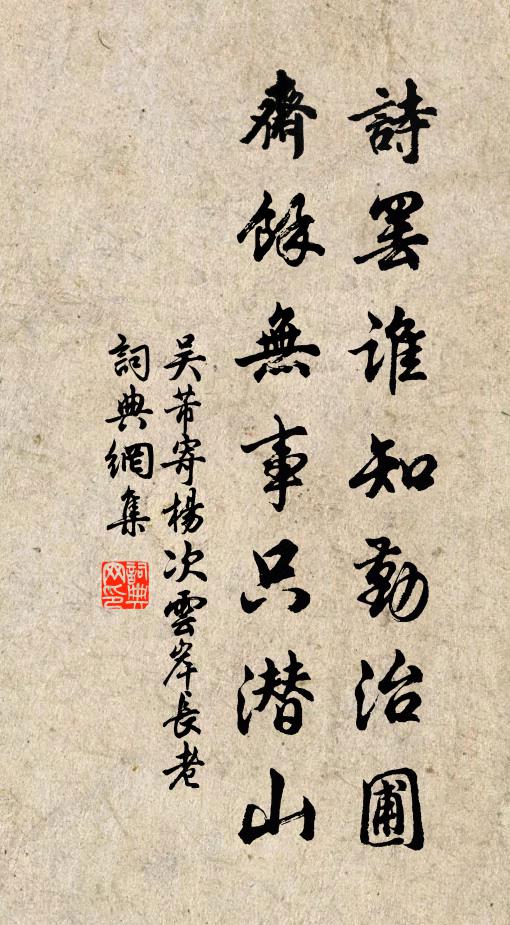 詩罢谁知勤治圃
齋餘無事只潜山
吴芾寄楊次雲岑長老
詞典網集
詞典
网印